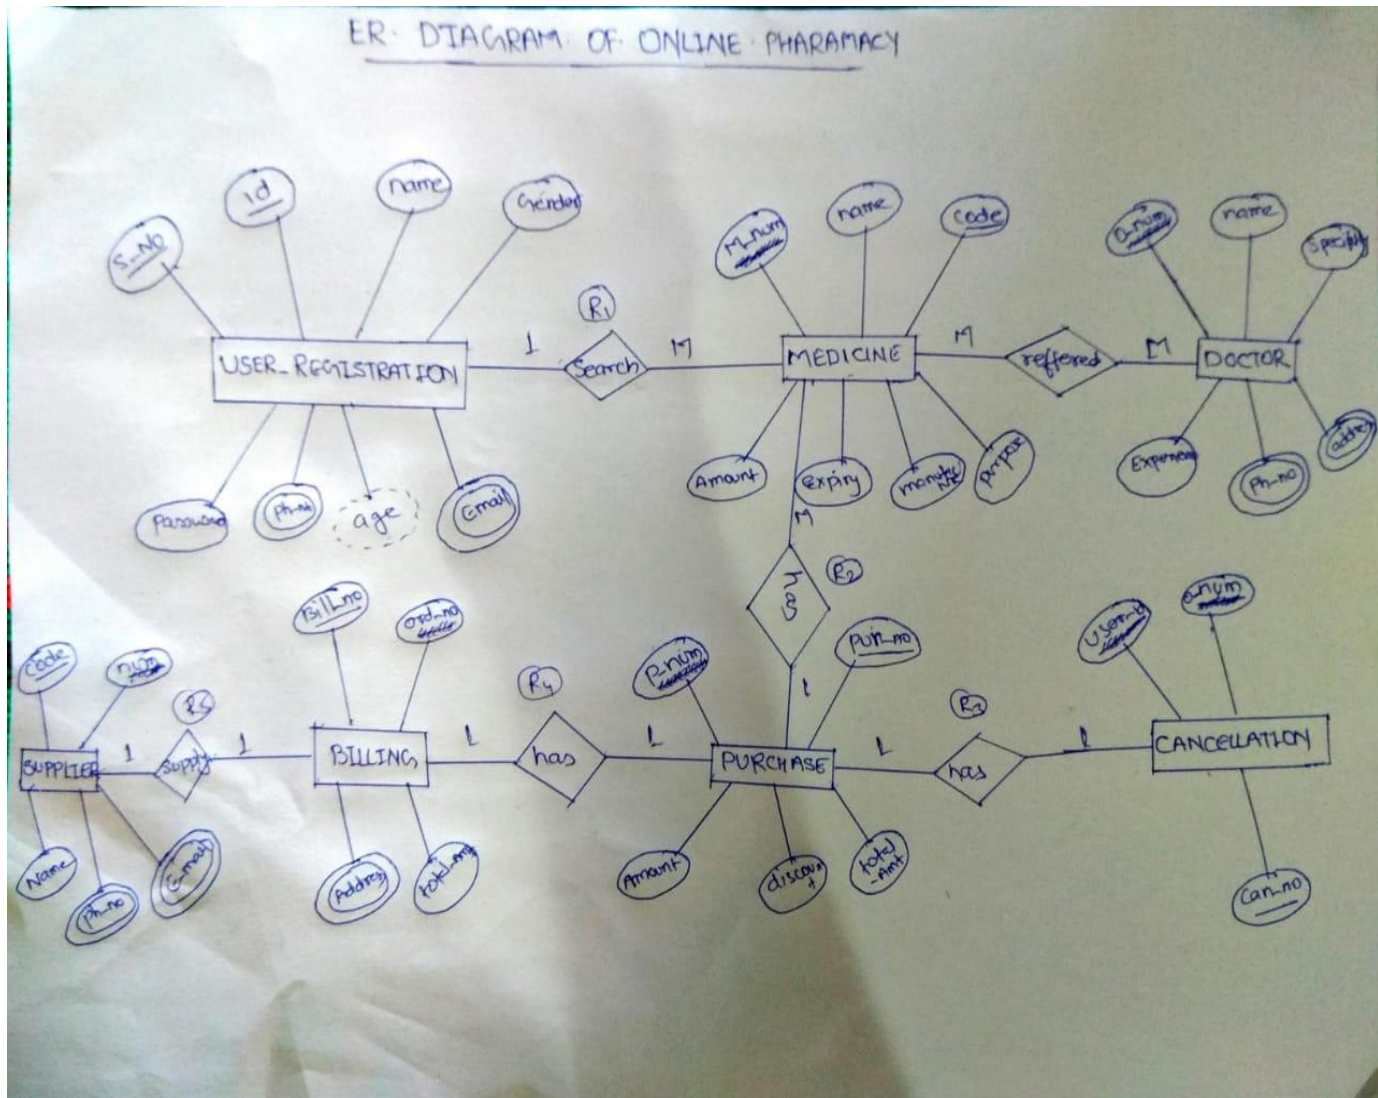 ER. DIAGRAM. OF. ONLINE. PHARAMACY
S_No
id
name
Gender
USER_REGISTRATION
Password
Ph_No
age
Email
1
R1
Search
M
M_num
name
code
MEDICINE
Amount
Expiry
M
reffered
M
D_num
name
DOCTOR
Ph_no
M
has
R2
1
code
num
SUPPLIER
Name
Ph_no
E-mail
1
R5
Supply
1
Bill_no
ord_no
BILLING
Address
total_amt
1
R4
has
1
P_num
pur_no
PURCHASE
Amount
discount
total
-Amt
1
R3
has
1
o_num
CANCELLATION
Can_no